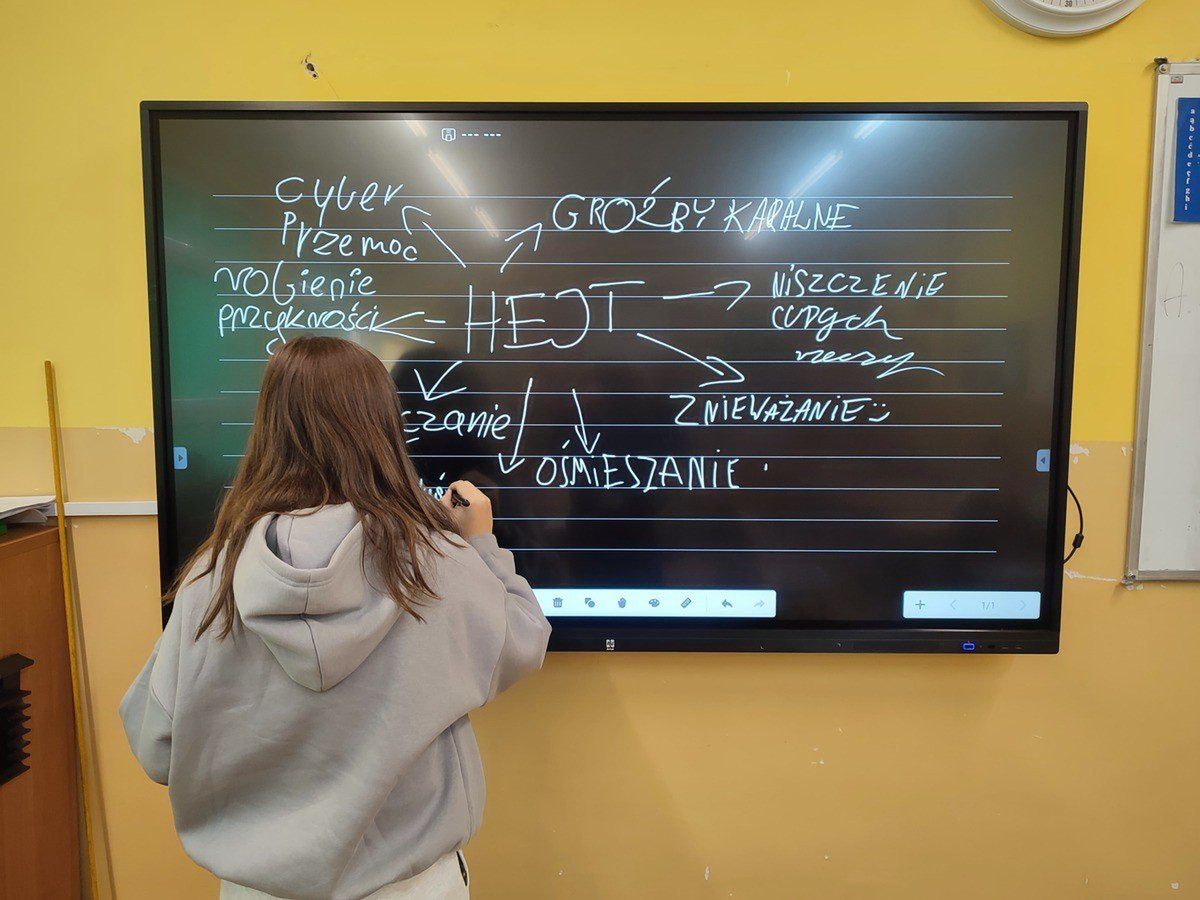 cyber
przemoc
GROŹBY KARALNE
robienie
przykrości
HEJT
NISZCZENIE
cudzych
rzeczy
ZNIEWAŻANIE :)
OŚMIESZANIE
1/1
a
ą
b
c
ć
d
e
ę
f
g
h
i
30